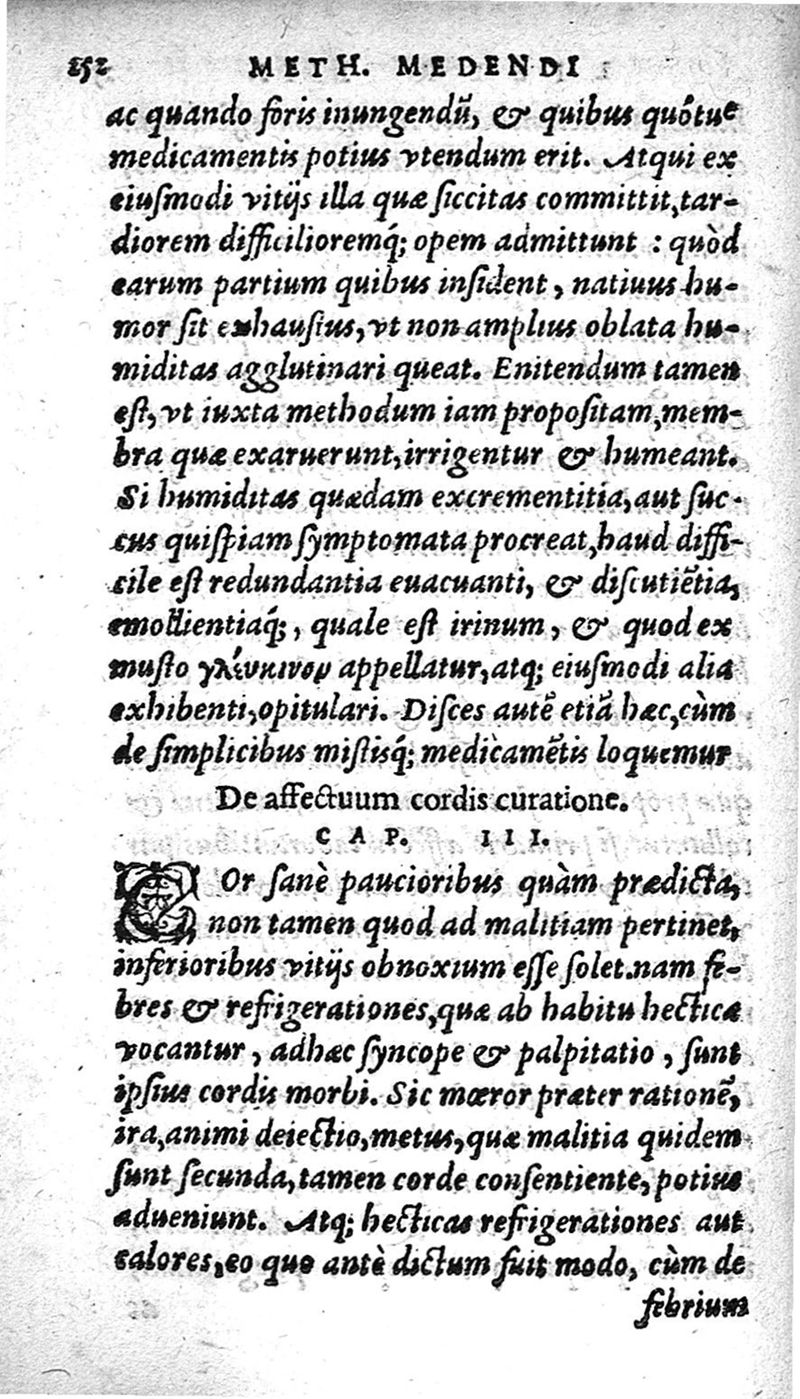 252 METH. MEDENDI
ac quando foris inungendũ, & quibus quótue
medicamentis potius vtendum erit. Atqui ex
eiuſmodi vitijs illa quæ ſiccitas committit, tar-
diorem difficilioremq́; opem admittunt : quòd
earum partium quibus inſident, natiuus hu-
mor ſit exhauſtus, vt non amplius oblata hu-
miditas agglutinari queat. Enitendum tamen
eſt, vt iuxta methodum iam propoſitam, mem-
bra quæ exaruerunt, irrigentur & humeant.
Si humiditas quædam excrementitia, aut ſuc-
cus quiſpiam ſymptomata procreat, haud diffi-
cile eſt redundantia euacuanti, & diſcutiẽtia,
emollientiaq́;, quale eſt irinum, & quod ex
muſto γλεύκινον appellatur, atq; eiuſmodi alia
exhibenti, opitulari. Diſces autẽ etiã hæc, cùm
de ſimplicibus miſtisq́; medicamẽtis loquemur
De affectuum cordis curatione.
CAP. III.
COr ſanè paucioribus quàm prædicta,
non tamen quod ad malitiam pertinet,
inferioribus vitijs obnoxium eſſe ſolet. nam fe-
bres & refrigerationes, quæ ab habitu hecticæ
vocantur, adhæc ſyncope & palpitatio, ſunt
ipſius cordis morbi. Sic mœror præter rationẽ,
ira, animi deiectio, metus, quæ malitia quidem
ſunt ſecunda, tamen corde conſentiente, potius
adueniunt. Atq; hecticas refrigerationes aut
calores, eo quo antè dictum fuit modo, cùm de
febrium